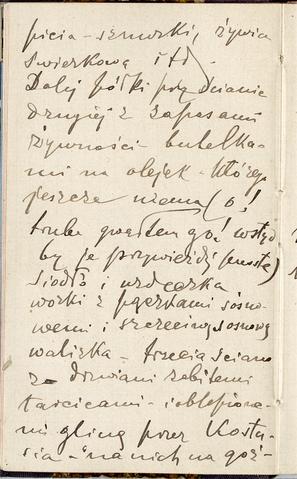 picia – sznurki, żywica
świerkowa i td)
Dalej półki przy ścianie
drugiej z zapasami
żywności – butelka-
mi na olejek – którego
jeszcze niema (o!
trzeba go! wstyd
by je przywieźdź puste)
siodło i uzdeczka
worki z pączkami sosno-
wemi i szczeciną sosnową
walizka – trzecia ściana
z – drzwiami zabitemi
tarcicami – i oblepione-
mi gliną przez Kostu-
sia – na nich na goź-